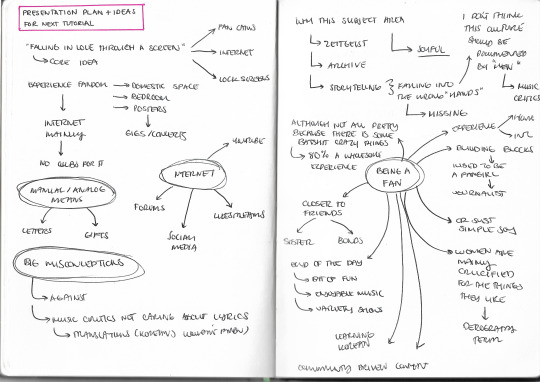 PRESENTATION PLAN + IDEAS
FOR NEXT TUTORIAL
"FALLING IN LOVE THROUGH A SCREEN"
CORE IDEA
FAN CAMS
INTERNET
LOCK SCREENS
EXPERIENCE FANDOM
DOMESTIC SPACE
BEDROOM
POSTERS
GIGS/CONCERTS
INTERNET
MAINLY
NO RULES FOR IT
MANUAL/ANALOG
MEANS
LETTERS
GIFTS
INTERNET
YOUTUBE
FORUMS
SOCIAL
MEDIA
LIVESTREAMS
BIG MISCONCEPTIONS
AGAINST
MUSIC CRITICS NOT CARING ABOUT LYRICS
TRANSLATIONS (KOREAN)
WHY THIS SUBJECT AREA
ZEITGEIST
ARCHIVE
STORYTELLING
JOYFUL
FALLING INTO
THE WRONG "HANDS"
MISSING
I DON'T THINK
THIS CULTURE
SHOULD BE
DOCUMENTED
BY "MEN"
MUSIC
CRITICS
ALTHOUGH NOT ALL PRETTY
BECAUSE THERE IS SOME
BATSHIT CRAZY THINGS
80% A WHOLESOME
EXPERIENCE
BEING A
FAN
EXPERIENCE
INTL
BUILDING BLOCKS
USED TO BE
A FANGIRL
JOURNALIST
CLOSER TO
FRIENDS
SISTER
BONDS
OR JUST
SIMPLE JOY
END OF THE DAY
BIT OF FUN
ENJOYABLE MUSIC
VARIETY SHOWS
WOMEN ARE
MAINLY
CRUCIFIED
FOR THE THINGS
THEY LIKE
DEROGATORY
TERM
LEARNING
KOREAN
COMMUNITY DRIVEN CONTENT